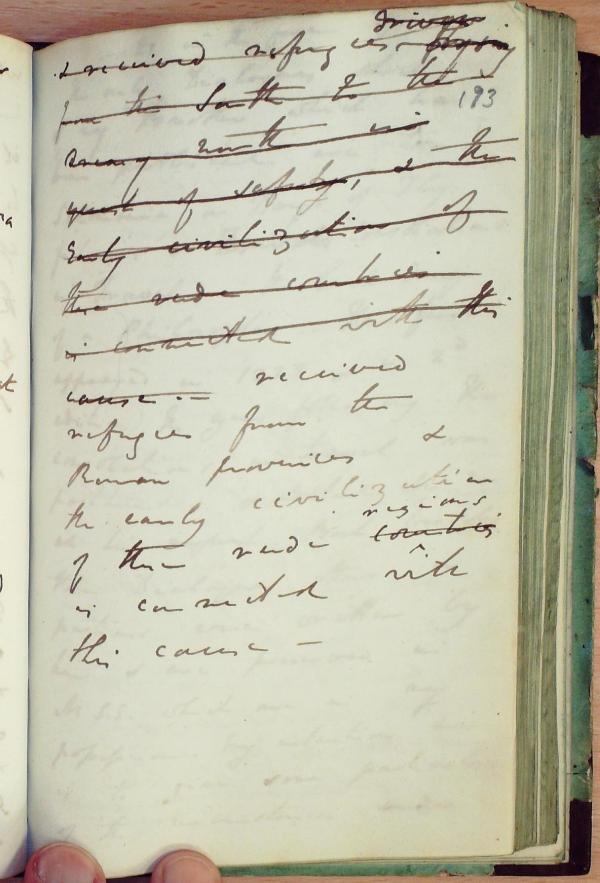 driven
& received refugees flying
193
from the South to the
snowy north in
quest of safety, & the
Early civilization of
these rude countries
is connected with this
cause. — received
refugees from the
Roman provinces &
the early civilization
regions
of these rude countries
is connected with
this cause —